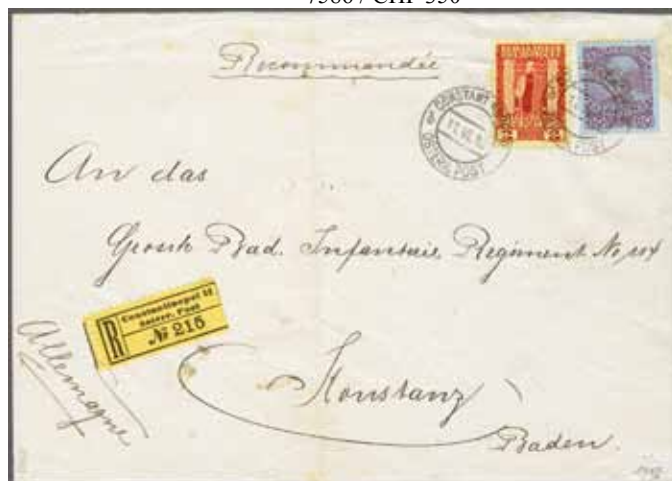 7580 / CHF 350
Recommandée
CONSTANT
ÖSTERR. POST
POST
An das
Grossh Bad. Infanterie Regiment No 114
Constantinopel II
Österr. Post
R
№ 215
Allemagne
Konstanz
Baden.